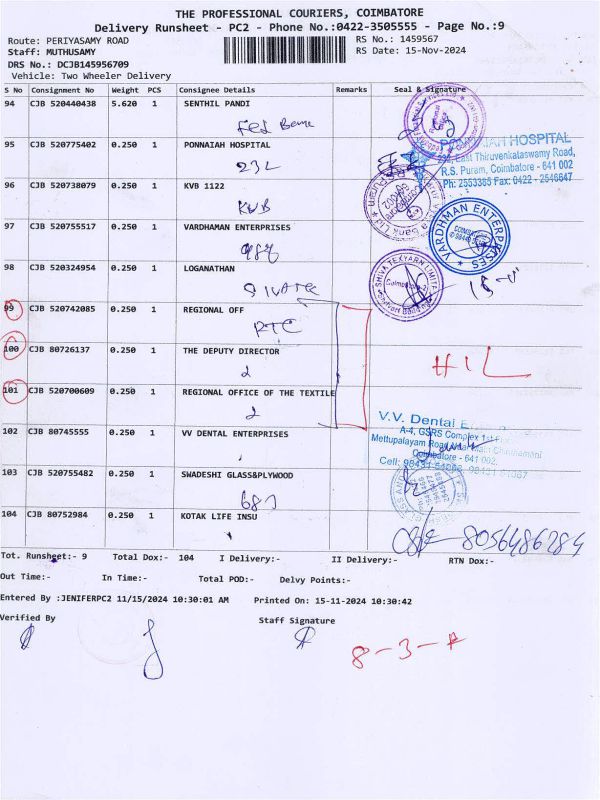 THE PROFESSIONAL COURIERS, COIMBATORE
Delivery Runsheet - PC2 - Phone No.:0422-3505555 - Page No.:9
Route: PERIYASAMY ROAD RS No.: 1459567
Staff: MUTHUSAMY RS Date: 15-Nov-2024
DRS No.: DCJB145956709
Vehicle: Two Wheeler Delivery
S No Consignment No Weight PCS Consignee Details Remarks Seal & Signature
94 CJB 520440438 5.620 1 SENTHIL PANDI
95 CJB 520775402 0.250 1 PONNAIAH HOSPITAL
232
PONNAIAH HOSPITAL
232, East Thiruvenkataswamy Road,
R.S. Puram, Coimbatore - 641 002
Ph: 2553385 Fax: 0422 - 2546647
96 CJB 520738079 0.250 1 KVB 1122
KVB
97 CJB 520755517 0.250 1 VARDHAMAN ENTERPRISES
VARDHMAN ENTERPRISES
98 CJB 520324954 0.250 1 LOGANATHAN
SHIVA TEXYARN LIMITED
99 CJB 520742085 0.250 1 REGIONAL OFF
RTC
100 CJB 80726137 0.250 1 THE DEPUTY DIRECTOR
HIL
101 CJB 520700609 0.250 1 REGIONAL OFFICE OF THE TEXTILE
V.V. Dental
A-4, GSRS Complex 1st
Mettupalayam Road
Coimbatore - 641 002.
102 CJB 80745555 0.250 1 VV DENTAL ENTERPRISES
103 CJB 520755482 0.250 1 SWADESHI GLASS&PLYWOOD
687
104 CJB 80752984 0.250 1 KOTAK LIFE INSU
8056486284
Tot. Runsheet:- 9 Total Dox:- 104 I Delivery:- II Delivery:- RTN Dox:-
Out Time:- In Time:- Total POD:- Delvy Points:-
Entered By :JENIFERPC2 11/15/2024 10:30:01 AM Printed On: 15-11-2024 10:30:42
Verified By Staff Signature
8-3-A